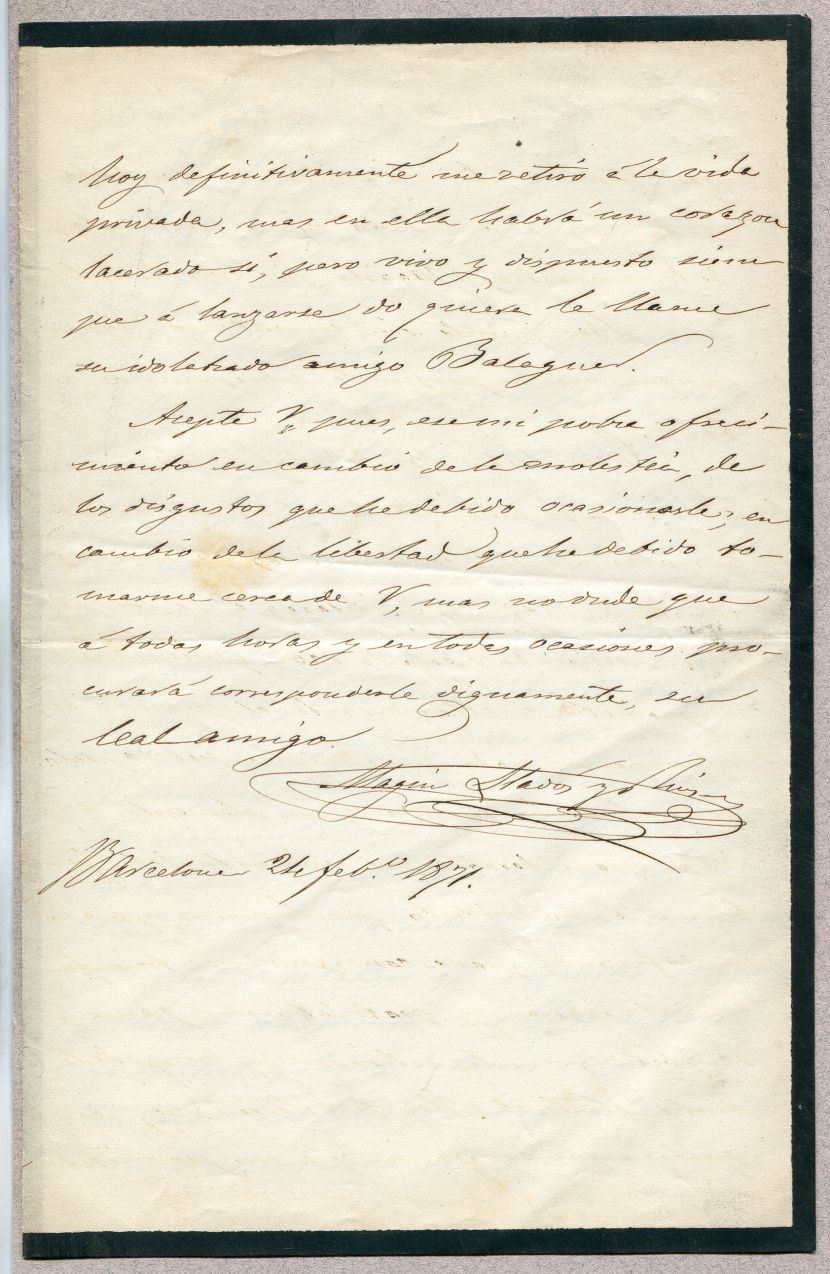 hoy definitivamente me retiro á la vida
privada, mas en ella habrá un corazon
lacerado sí, pero vivo y dispuesto siem
pre á lanzarse do quiera le llame
su idolatrado amigo Balaguer.
Acepte V, pues, ese mi pobre ofreci-
miento en cambio de la molestia, de
los disgustos que he debido ocasionarle; en
cambio de la libertad que he debido to-
marme cerca de V, mas no dude que
á todas horas y en todas ocasiones pro-
curará corresponderle dignamente, su
leal amigo.
Magin Lladós y
Barcelona 24 feb.º 1871.